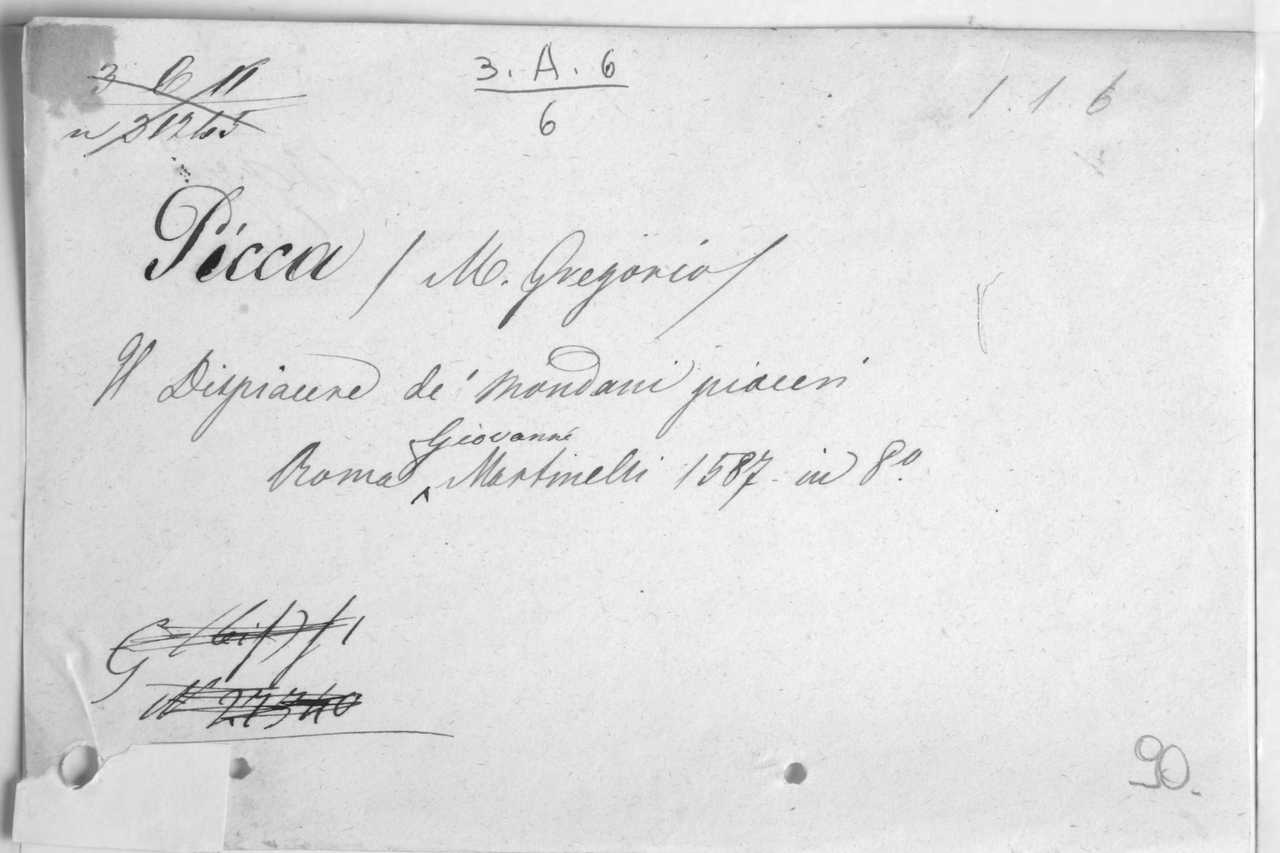 3 C 11
3. A. 6
1. 1. 6
6
n 31265
Picca / M. Gregorio /
Il Dispiacere de' mondani piaceri
Giovanni
Roma Martinelli 1587 in 8º
G (bis) / 1
Nº 27340
90.